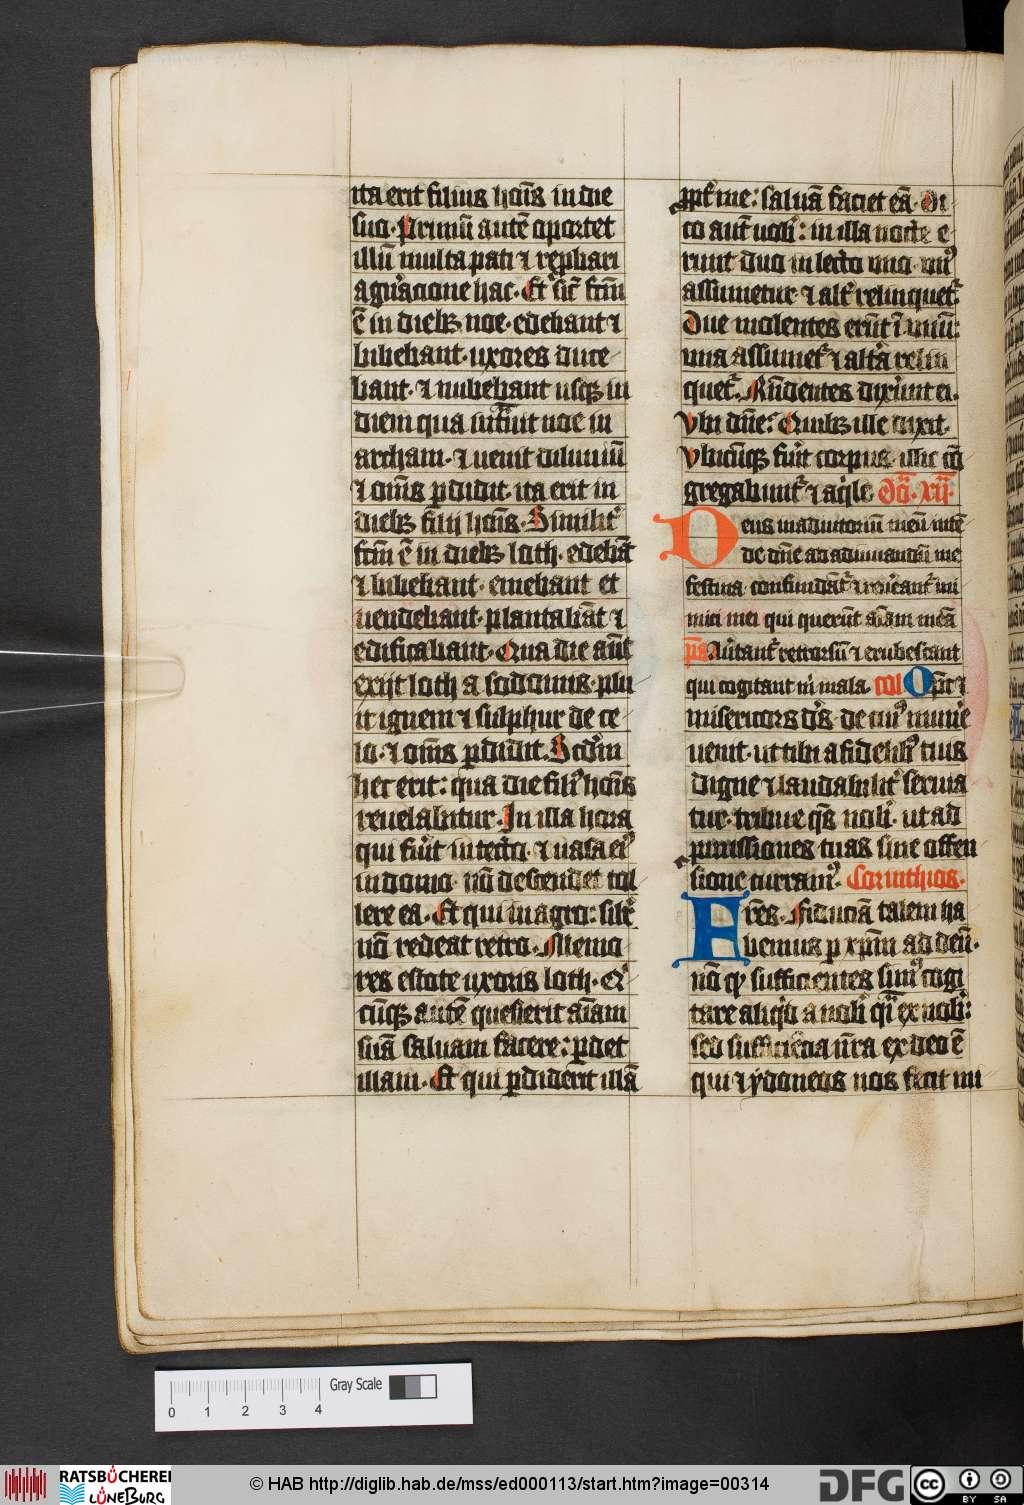 ita erit filius ho̅is in die
suo. Primu̅ aute̅ oportet
illu̅ multa pati ⁊ rep̱bari
a gn̾acione hac. Et sic̾ fc̅m
e̅ in dieb⁊ noe. edebant ⁊
bibebant. uxores duce
bant. ⁊ nubebant usq⁊ in
diem qua intᷓuit noe in
archam. ⁊ uenit diluuiu̅
⁊ om̅s p̱didit. ita erit in
dieb⁊ filij ho̅is. Similit̾
fc̅m e̅ in dieb⁊ loth. edeba̅t
⁊ bibebant. emebant et
uendebant. plantaba̅t ⁊
edificabant. Qua die au̅t
exijt loth a sodomis. plu
it ignem ⁊ sulphur de ce
lo. ⁊ om̅s p̱didit. Scd̾m
hec erit: qua die fili⁹ ho̅is
reuelabitur. In illa hora
qui fu̾it in tecto. ⁊ uasa ei⁹
in domo. no̅ descendet tol
lere ea. Et qui in agro: sil̾r
no̅ redeat retro. Memo
res estote uxoris loth. Q̾
cu̅q⁊ aute̅ quesierit a̅iam
sua̅ saluam facere: p̱det
illam. Et qui p̱diderit illa̅
ppt̾ me: saluā faciet eā. Di
co aut̅ uob̾: in illa nocte e
runt duo in lecto uno. un⁹
assumetur ⁊ alt̾ relinquet̾.
Due molentes eru̅t i̅ unu̅:
una assumet̾ ⁊ alt̾a relin
quet̾. Rn̅dentes dixe̾unt ei.
Vbi dn̅e? Quib⁊ ille dixit.
Vbicu̅q⁊ fu̾it corpus. illic co̅
gregabunt̾ ⁊ aq̾le. Dc̅a. xij.
Deus in adiutoriu̅ meu̅ inte̅
de dn̅e ad adiuuandu̅ me
festina. confunda̅t̾ ⁊ reue̾ant̾ ini
mici mei qui queru̅t a̅iam mea̅
p̅s Au̾tant̾ retrorsu̅ ⁊ erubescant
qui cogitant m̾ mala. col Op̅s ⁊
misericors d̅s. de cui⁹ mune̾
uenit. ut tibi a fidelib⁹ tuis
digne ⁊ laudabilit̾ seruia
tur. tribue q̅s nob̾. ut ad
pmissiones tuas sine offen
sione curram⁹. Corinthios.
Fr̅es. Fiducia̅ talem ha
bemus p̱ xp̅m ad deu̅.
no̅ qꝫ sufficientes sim⁹ cogi
tare aliq̾d a nob̾ qᷓi ex nob̾:
sed sufficie̅cia n̅ra ex deo e̅
qui ⁊ ydoneos nos fecit mi
Gray Scale
0 1 2 3 4
RATSBÜCHEREI
LÜNEBURG
© HAB http://diglib.hab.de/mss/ed000113/start.htm?image=00314
DFG
cc BY SA